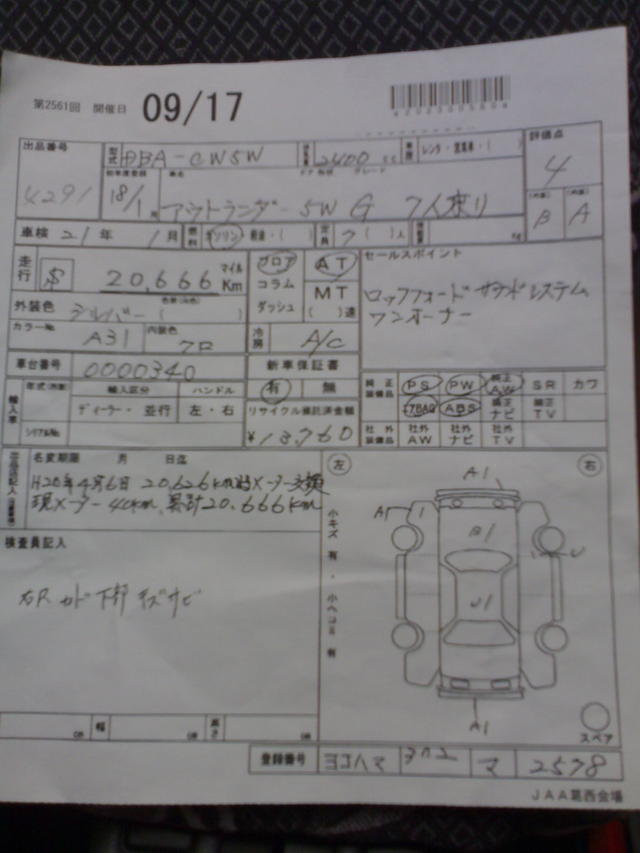 第2561回 開催日 09/17
出品番号 型式 DBA-CW5W 2400 cc 車歴 レンタ・営業車・( ) 評価点
4291 初年度登録 18/1月 車名 ドア 形状 グレード 4
アウトランダー 5W G 7人乗り (外装) B (内装) A
車検 21年 1月 燃料 ガソリン 軽油・( ) 定員 7( )人 kg
走行 $ 20,666 マイル Km フロア AT セールスポイント
コラム MT ロックフォードサウンドシステム
外装色 シルバー ( ) ダッシュ ( )速 ワンオーナー
カラーNo. A31 内装色 冷房 A/C
車台番号 0000340 新車保証書 純正装備品 PS PW 純正AW SR カワ
有 無 エアBAG ABS 純正ナビ 純正TV
輸入車 年式 輸入区分 ハンドル リサイクル預託済金額 社外装備品 社外AW 社外ナビ 社外TV
シリアルNo. ディーラー・並行 左・右 ¥13,760
名変期限 月 日迄 左 右
H20年4月6日 20,626km時メーター交換
現メーター40km 累計20,666km
検査員記入
右R カド下部キズサビ
小キズ有・小ヘコミ有
A1
A1
B1
U
U1
A1
スペア
cm 幅 cm 高さ cm
登録番号 ヨコハマ マ 2578
JAA葛西会場